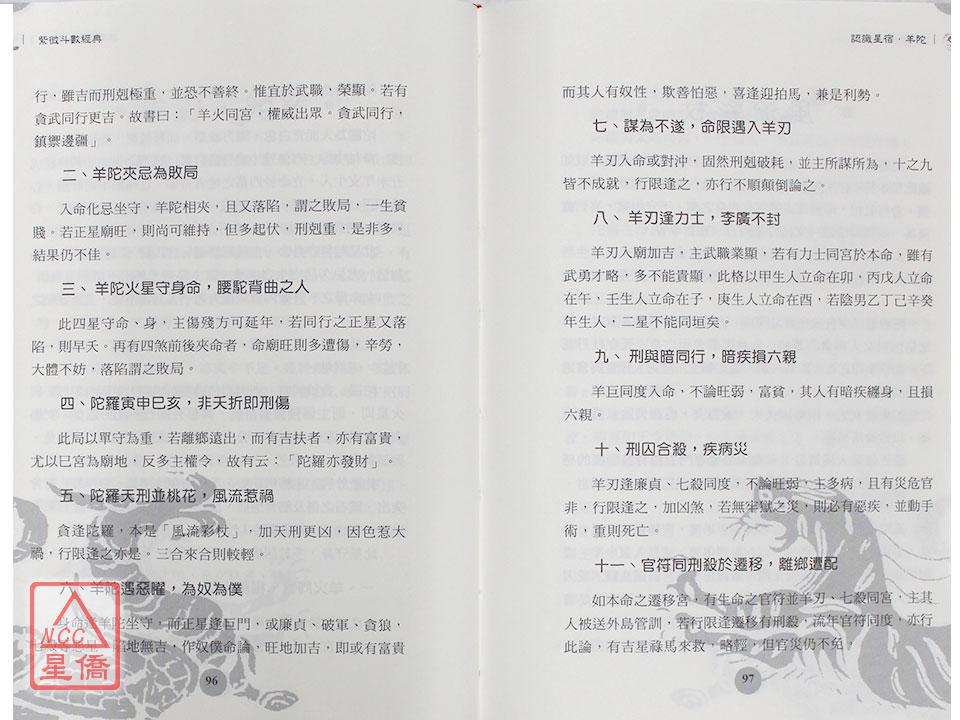 紫微斗數經典
行，雖吉而刑剋極重，並恐不善終。惟宜於武職，榮顯。若有
貪武同行更吉。故書曰：「羊火同宮，權威出眾。貪武同行，
鎮禦邊疆」。
二、羊陀夾忌為敗局
入命化忌坐守，羊陀相夾，且又落陷，謂之敗局，一生貧
賤。若正星廟旺，則尚可維持，但多起伏，刑剋重，是非多。
結果仍不佳。
三、羊陀火星守身命，腰駝背曲之人
此四星守命、身，主傷殘方可延年，若同行之正星又落
陷，則早夭。再有四煞前後夾命者，命廟旺則多遭傷，辛勞，
大體不妨，落陷謂之敗局。
四、陀羅寅申巳亥，非夭折即刑傷
此局以單守為重，若離鄉遠出，而有吉扶者，亦有富貴，
尤以巳宮為廟地，反多主權令，故有云：「陀羅亦發財」。
五、陀羅天刑並桃花，風流惹禍
貪逢陀羅，本是「風流彩杖」，加天刑更凶，因色惹大
禍，行限逢之亦是。三合來合則較輕。
六、羊陀遇惡曜，為奴為僕
身命逢羊陀坐守，而正星逢巨門，或廉貞、破軍、貪狼，
七殺等惡星，陷地無吉，作奴僕命論，旺地加吉，即或有富貴
96
NCC
星僑
認識星宿．羊陀
而其人有奴性，欺善怕惡，喜逢迎拍馬，兼是利勢。
七、謀為不遂，命限遇入羊刃
羊刃入命或對沖，固然刑剋破耗，並主所謀所為，十之九
皆不成就，行限逢之，亦行不順顛倒論之。
八、羊刃逢力士，李廣不封
羊刃入廟加吉，主武職業顯，若有力士同宮於本命，雖有
武勇才略，多不能貴顯，此格以甲生人立命在卯，丙戊人立命
在午，壬生人立命在子，庚生人立命在酉，若陰男乙丁己辛癸
年生人，二星不能同垣矣。
九、刑與暗同行，暗疾損六親
羊巨同度入命，不論旺弱，富貧，其人有暗疾纏身，且損
六親。
十、刑囚合殺，疾病災
羊刃逢廉貞、七殺同度，不論旺弱、主多病，且有災危官
非，行限逢之，加凶煞，若無牢獄之災，則必有惡疾，並動手
術，重則死亡。
十一、官符同刑殺於遷移，離鄉遭配
如本命之遷移宮，有生命之官符並羊刃、七殺同宮，主其
人被送外島管訓，若行限逢遷移有刑殺，流年官符同度，亦行
此論，有吉星祿馬來救，略輕，但官災仍不免。
97